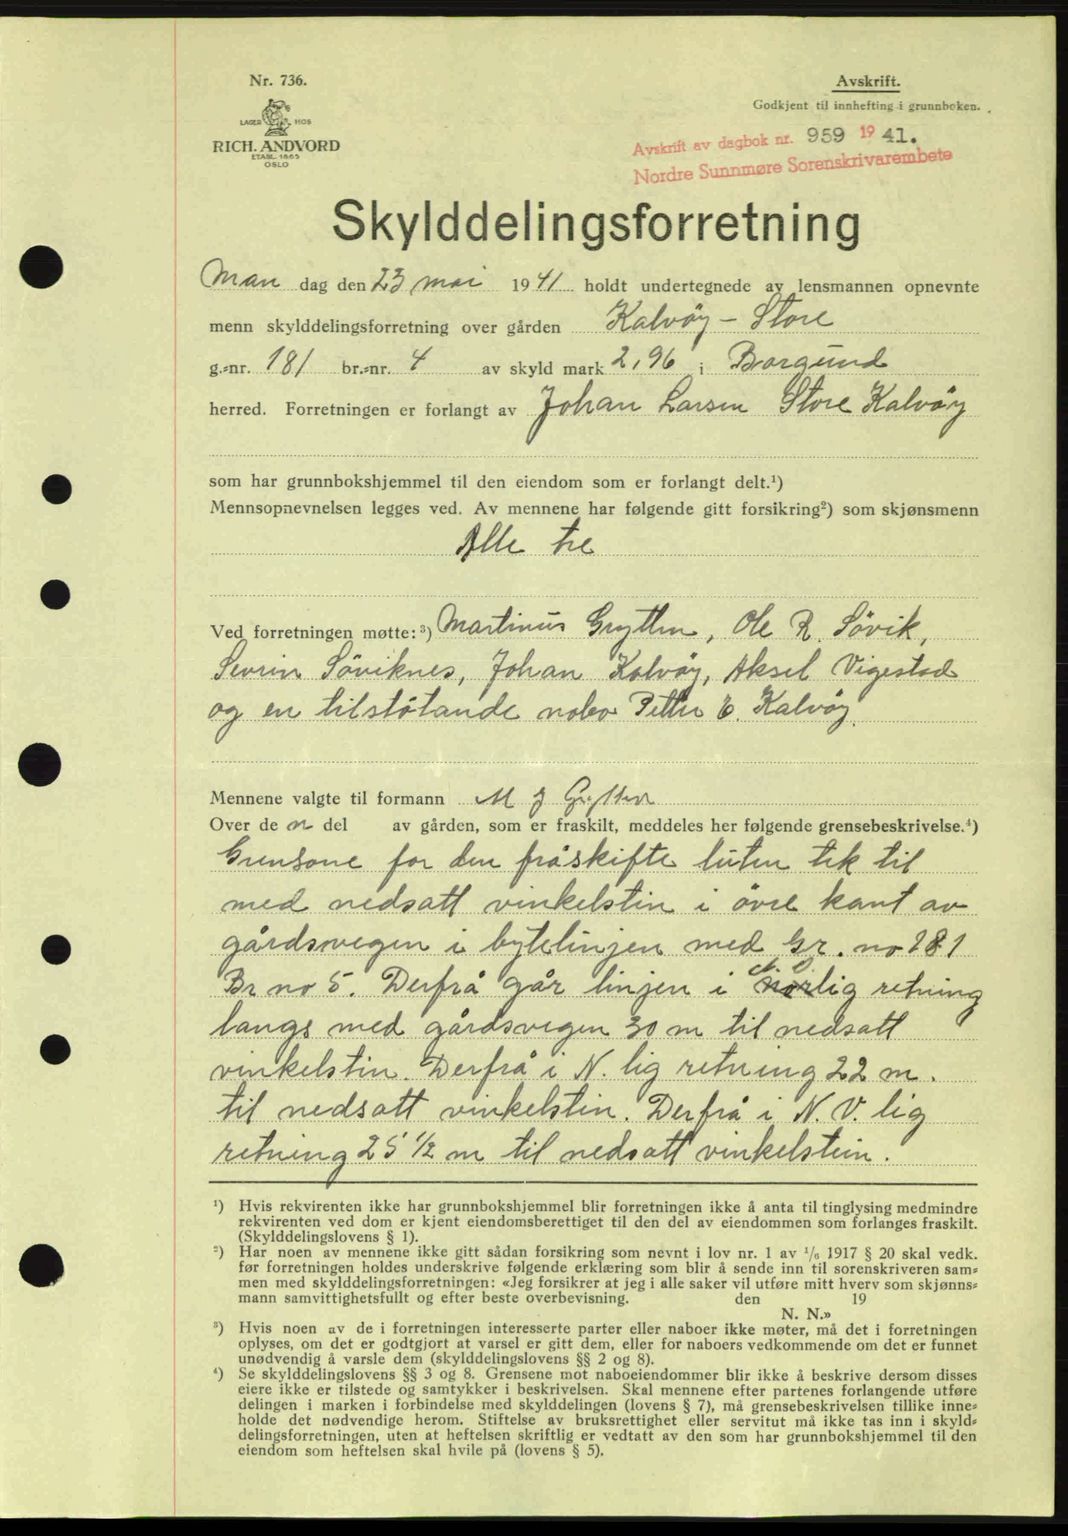 Nr. 736.
LAGER HOS
RICH. ANDVORD
ETABL. 1865
OSLO
Avskrift.
Godkjent til innhefting i grunnboken.
Avskrift av dagbok nr. 959 1941.
Nordre Sunnmøre Sorenskrivarembete
Skylddelingsforretning
Man dag den 23 mai 1941 holdt undertegnede av lensmannen opnevnte
menn skylddelingsforretning over gården Kalvöy - Store
g.=nr. 181 br.=nr. 4 av skyld mark 2,96 i Borgund
herred. Forretningen er forlangt av Johan Larsen Store Kalvöy
som har grunnbokshjemmel til den eiendom som er forlangt delt.¹)
Mennsopnevnelsen legges ved. Av mennene har følgende gitt forsikring²) som skjønsmenn
Alle tre
Ved forretningen møtte:³) Martinus Grytten, Ole R. Sövik,
Sevrin Söviknes, Johan Kalvöy, Aksel Vigestad
og en tilstötande nabo Petter E. Kalvöy.
Mennene valgte til formann M J Grytten
Over de n del av gården, som er fraskilt, meddeles her følgende grensebeskrivelse.⁴)
Grensone for den fråskifte luten tek til
med nedsatt vinkelstin i övre kant av
gårdsvegen i bytelinjen med Gr. no 181
Br no 5. Derfrå går linjen i norlig retning
langs med gårdsvegen 30 m til nedsatt
vinkelstin. Derfrå i N. lig retning 22 m.
til nedsatt vinkelstin. Derfrå i N. V. lig
retning 25 1/2 m til nedsatt vinkelstein.
¹) Hvis rekvirenten ikke har grunnbokshjemmel blir forretningen ikke å anta til tinglysing medmindre
rekvirenten ved dom er kjent eiendomsberettiget til den del av eiendommen som forlanges fraskilt.
(Skylddelingslovens § 1).
²) Har noen av mennene ikke gitt sådan forsikring som nevnt i lov nr. 1 av 1/6 1917 § 20 skal vedk.
før forretningen holdes underskrive følgende erklæring som blir å sende inn til sorenskriveren sam=
men med skylddelingsforretningen: «Jeg forsikrer at jeg i alle saker vil utføre mitt hverv som skjønns=
mann samvittighetsfullt og efter beste overbevisning. den 19
N. N.»
³) Hvis noen av de i forretningen interesserte parter eller naboer ikke møter, må det i forretningen
oplyses, om det er godtgjort at varsel er gitt dem, eller for naboers vedkommende om det er funnet
unødvendig å varsle dem (skylddelingslovens §§ 2 og 8).
⁴) Se skylddelingslovens §§ 3 og 8. Grensene mot naboeiendommer blir ikke å beskrive dersom disses
eiere ikke er tilstede og samtykker i beskrivelsen. Skal mennene efter partenes forlangende utføre
delingen i marken i forbindelse med skylddelingen (lovens § 7), må grensebeskrivelsen tillike inne=
holde det nødvendige herom. Stiftelse av bruksrettighet eller servitut må ikke tas inn i skyld=
delingsforretningen, uten at heftelsen skriftlig er vedtatt av den som har grunnbokshjemmel til den
eiendom som heftelsen skal hvile på (lovens § 5).